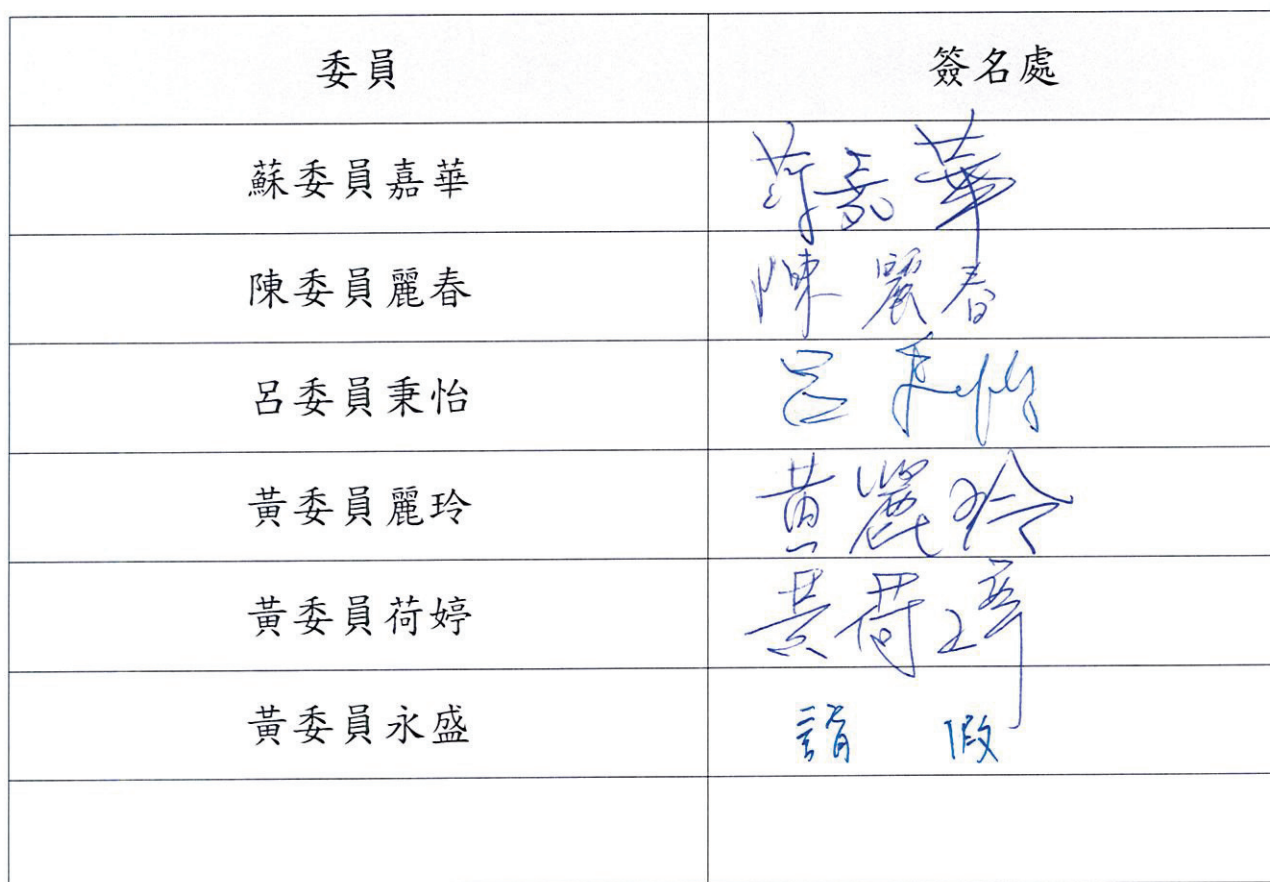 委員 簽名處
蘇委員嘉華 蘇嘉華
陳委員麗春 陳麗春
呂委員秉怡 呂秉怡
黃委員麗玲 黃麗玲
黃委員荷婷 黃荷婷
黃委員永盛 請假